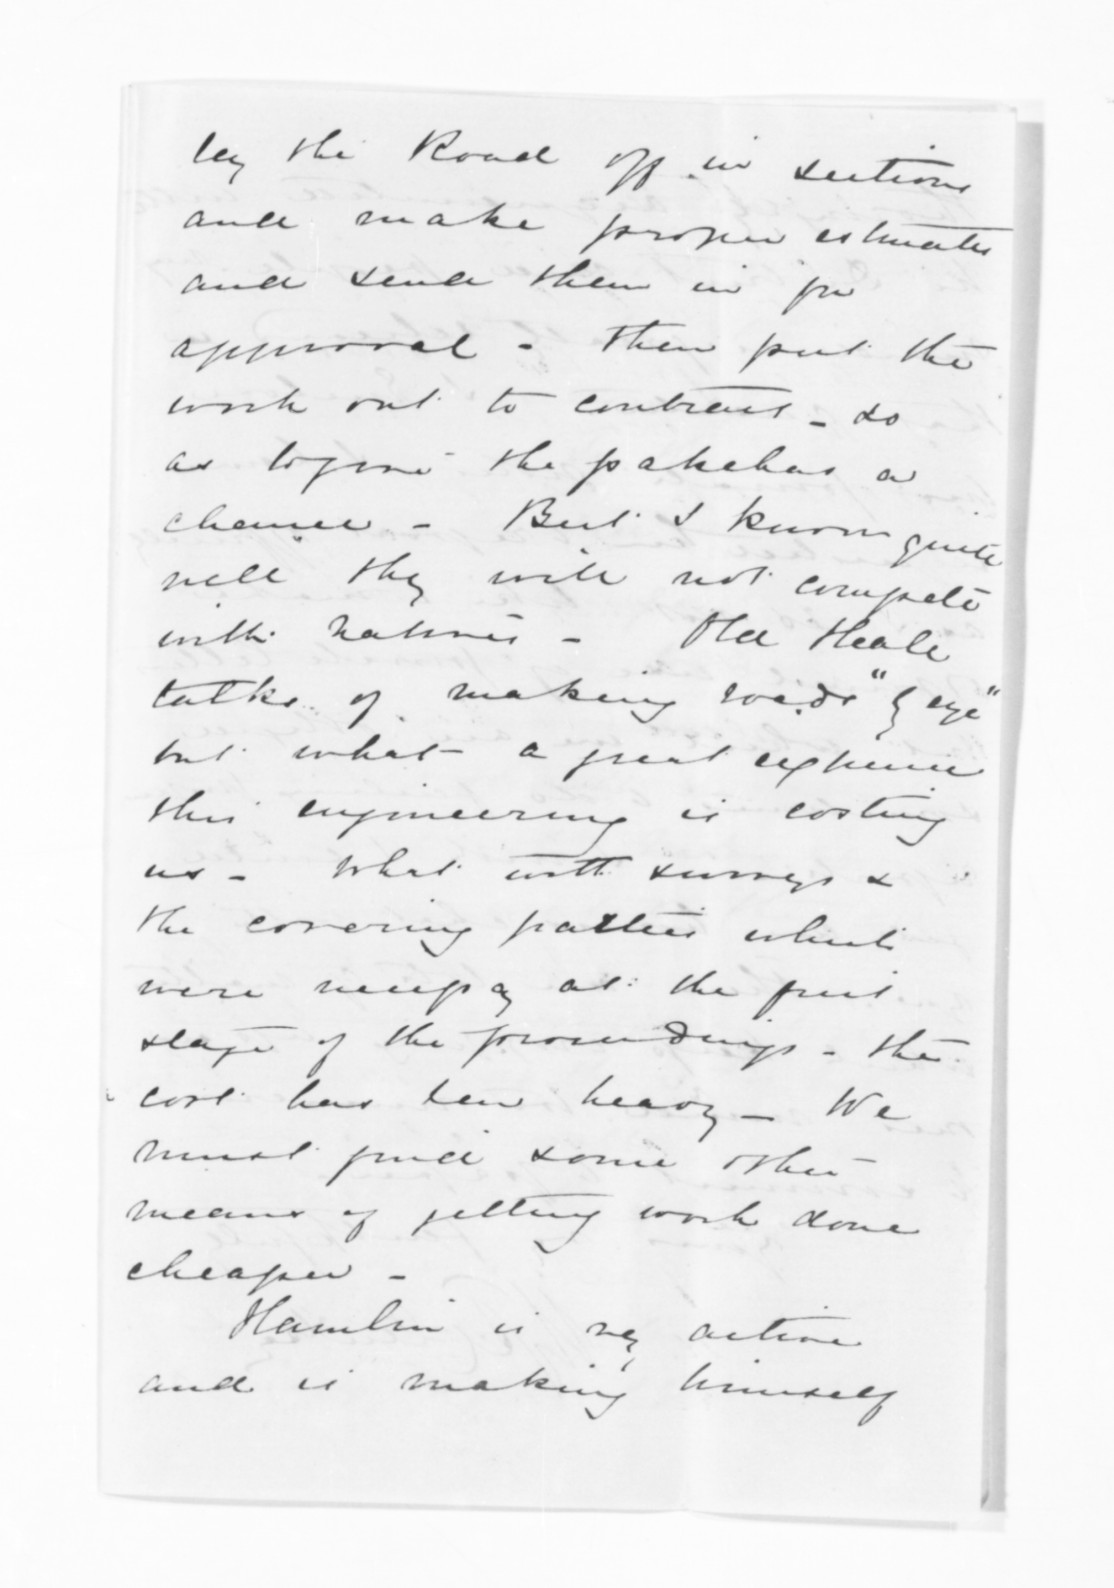 lay the Road off in sections
and make proper estimates
and send them in for
approval - then put the
work out to contract - so
as to give the pakehas a
chance - But I know quite
well they will not compete
with natives - Old Heale
talks of making roads "by eye"
but what a great expense
this engineering is costing
us - What with surveys &
the covering parties which
were necessary at the first
stage of the proceedings - the
cost has been heavy - We
must find some other
means of getting work done
cheaper -
Hamlin is very active
and is making himself